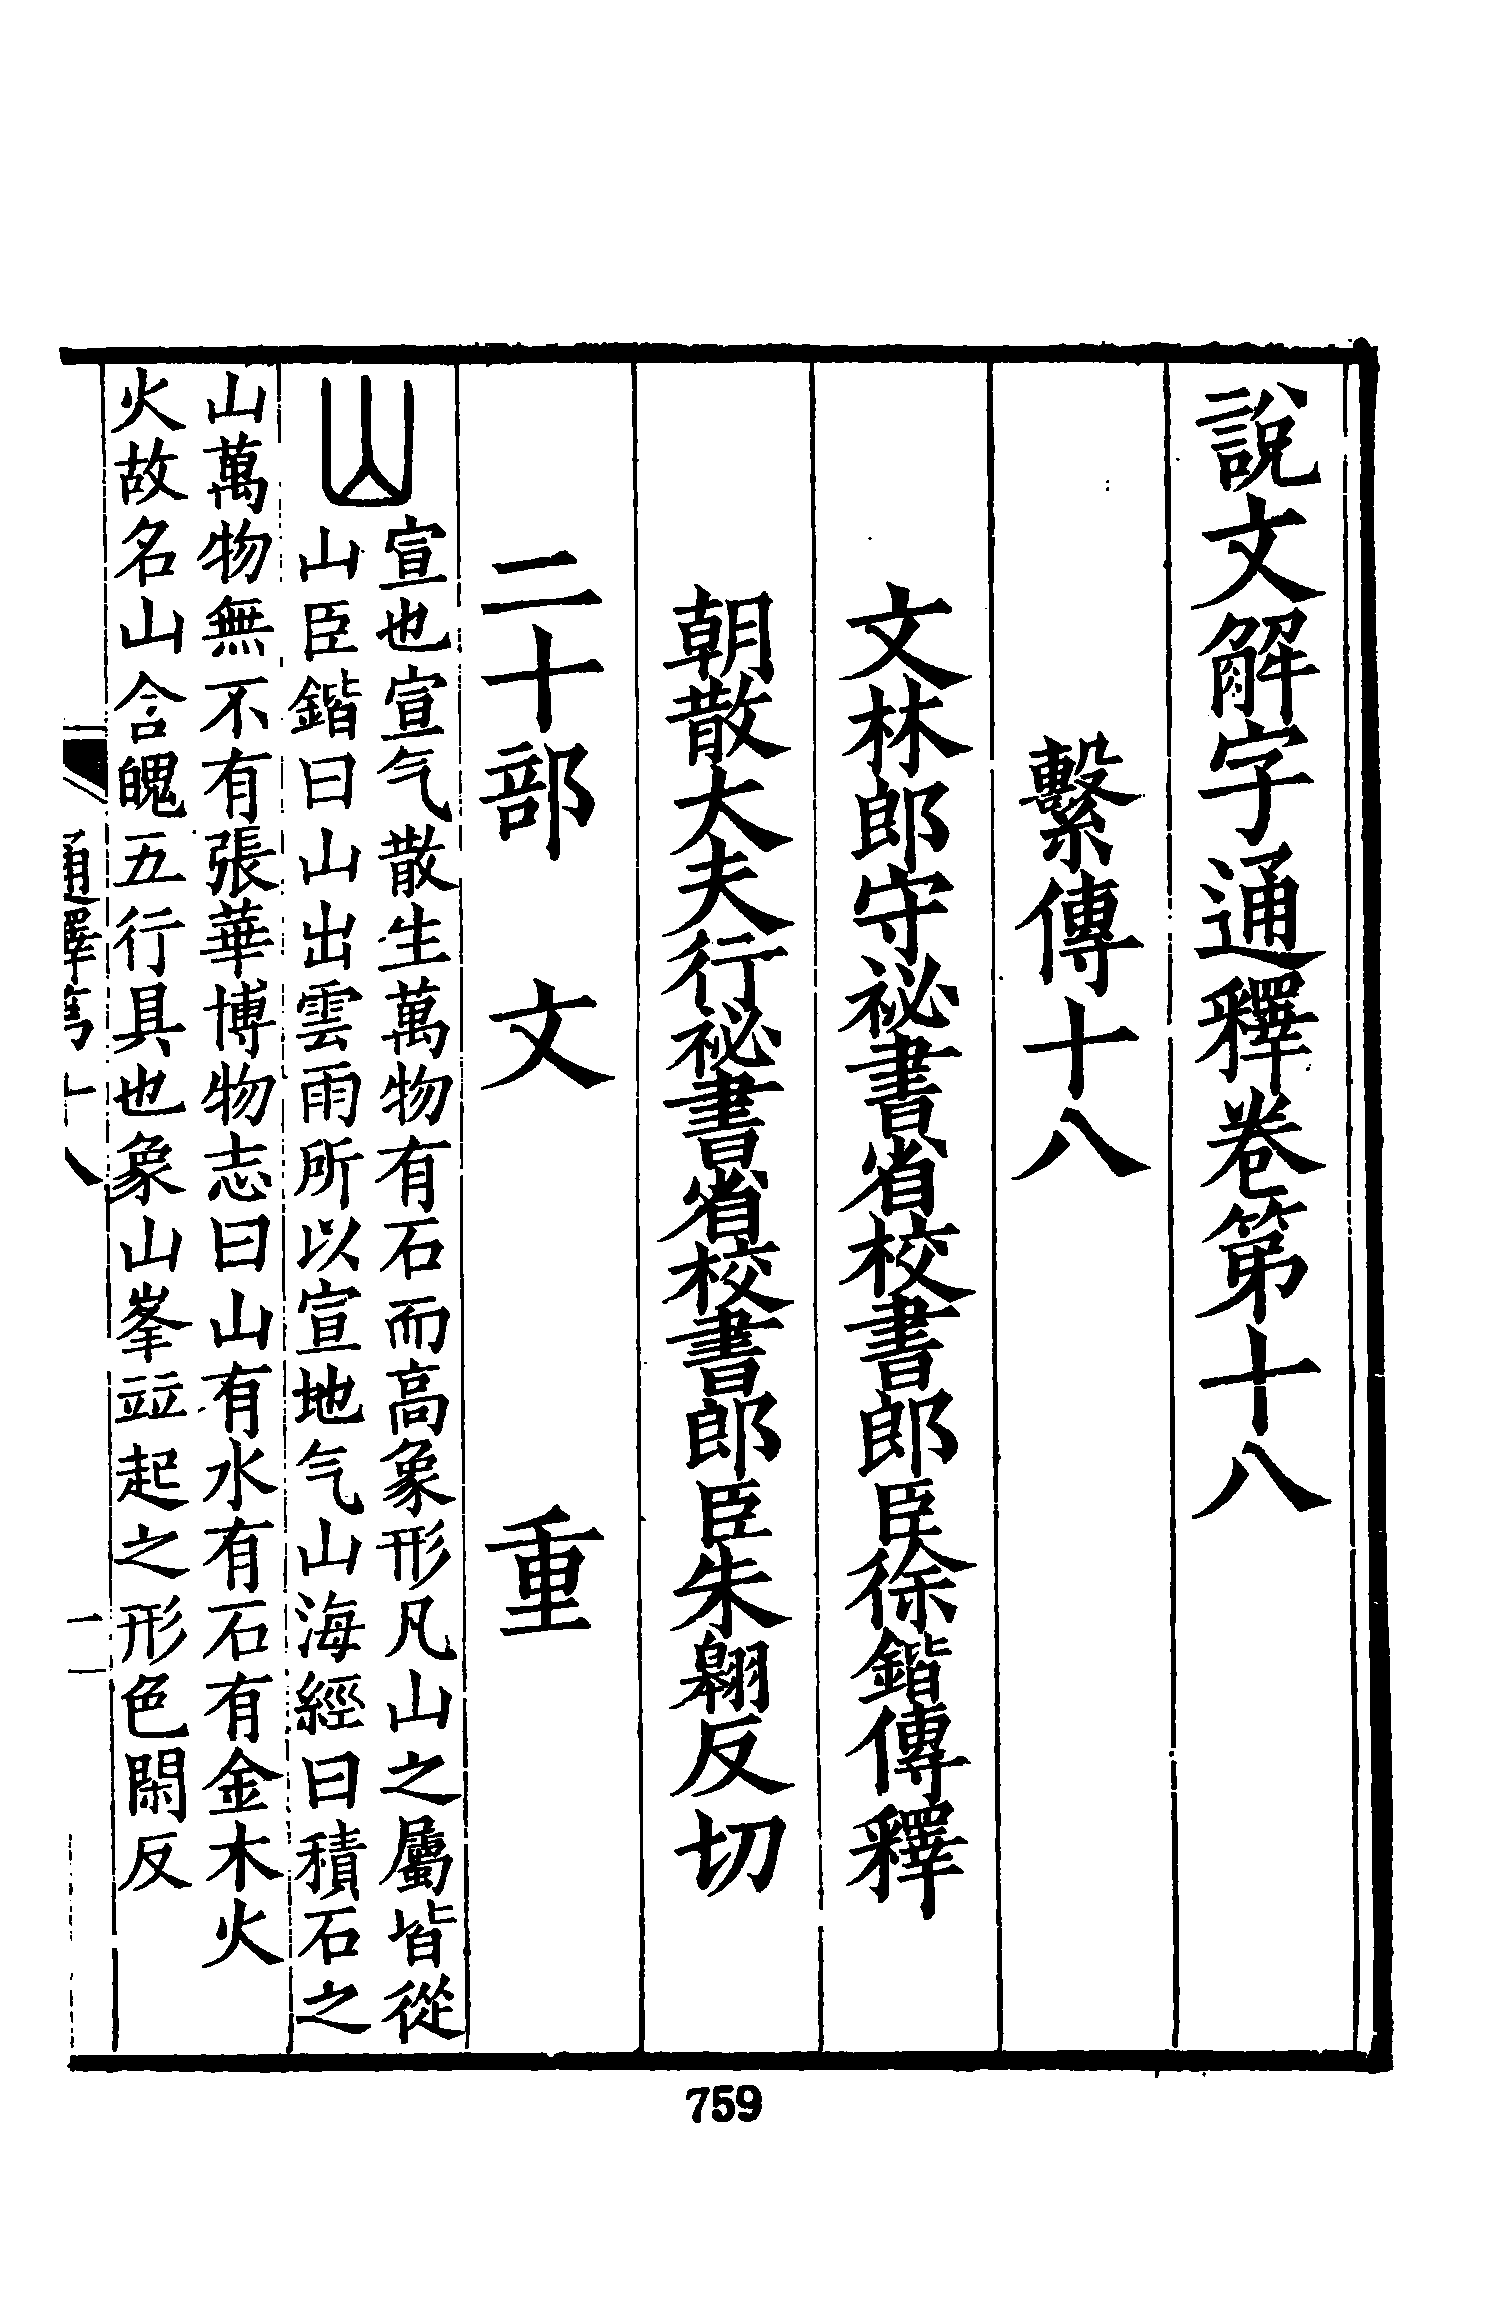 說文解字通釋卷第十八
繫傳十八
文林郎守祕書省校書郎臣徐鍇傳釋
朝散大夫行祕書省校書郎臣朱翱反切
二十部 文 重
山
宣也宣气散生萬物有石而高象形凡山之屬皆從
山臣鍇曰山出雲雨所以宣地气山海經曰積石之
山萬物無不有張華博物志曰山有水有石有金木火
火故名山含魄五行具也象山峯竝起之形色閑反
通釋第十八
一
759